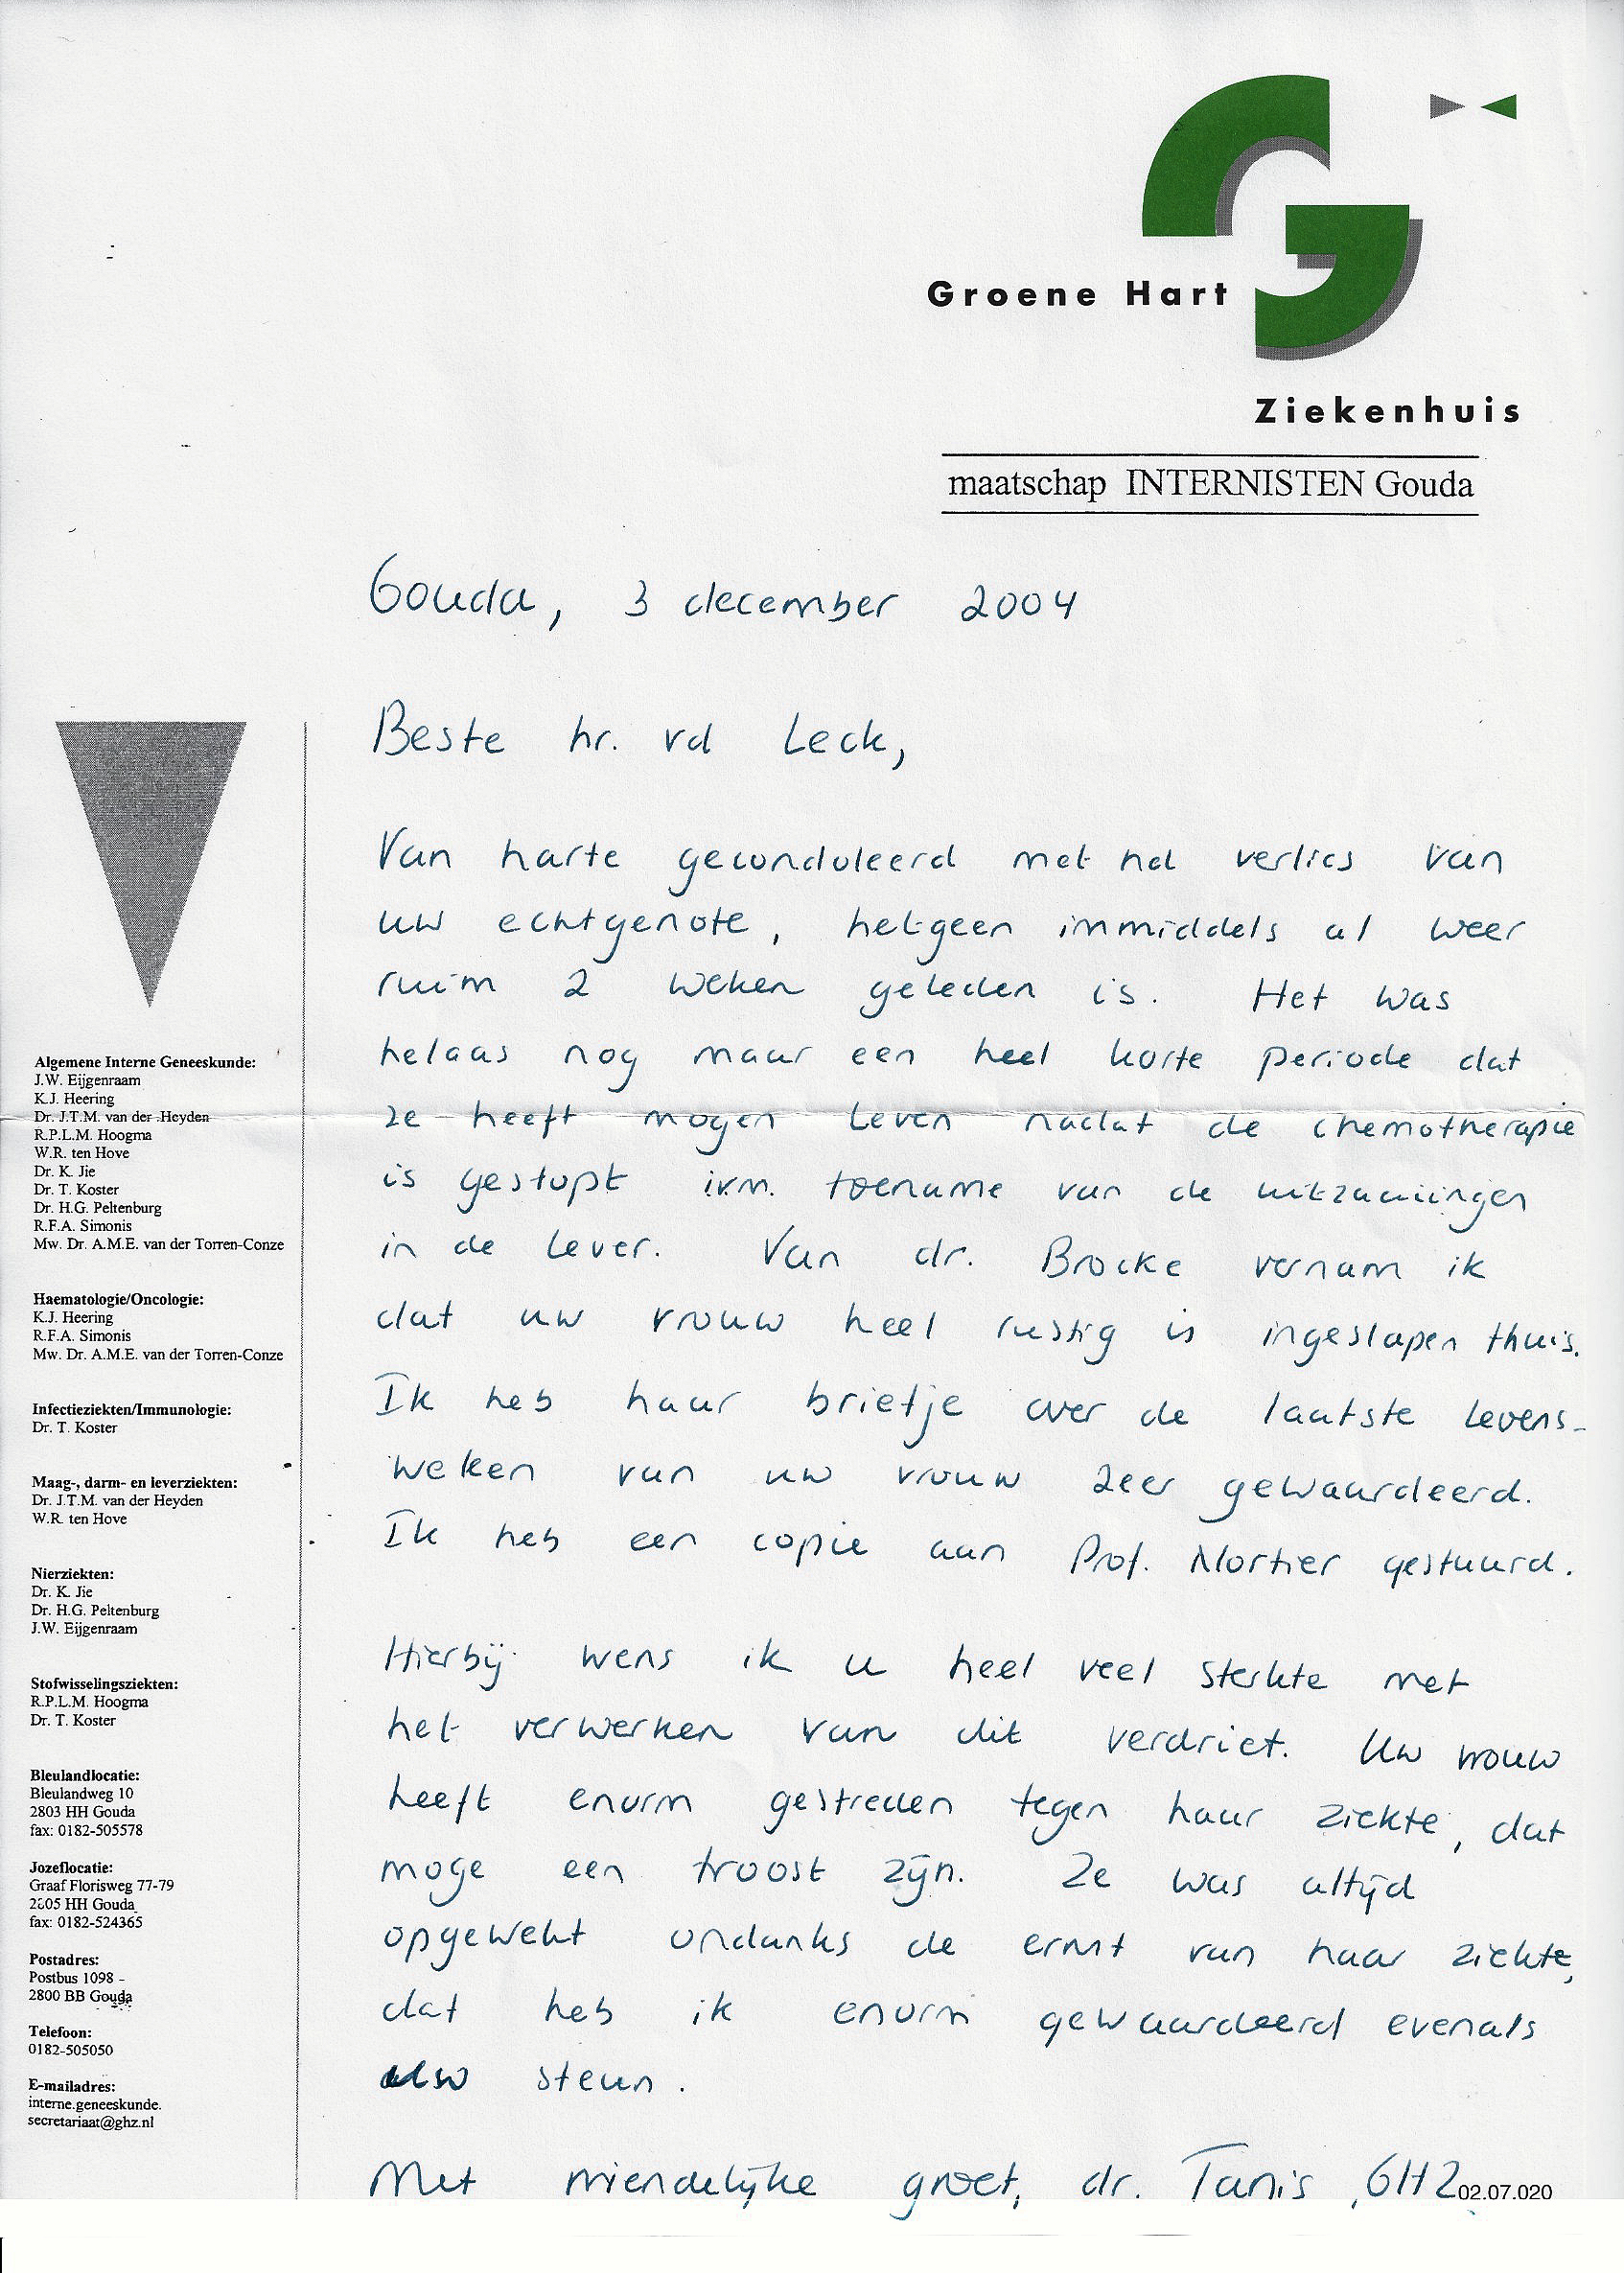 Groene Hart
Ziekenhuis
maatschap INTERNISTEN Gouda
Gouda, 3 december 2004
Beste hr. vd Leck,
Van harte gecondoleerd met het verlies van
uw echtgenote, hetgeen immiddels al weer
ruim 2 weken geleden is. Het was
helaas nog maar een heel korte periode dat
ze heeft mogen leven nadat de chemotherapie
is gestopt ivm. toename van de uitzaaiingen
in de lever. Van dr. Brocke vernam ik
dat uw vrouw heel rustig is ingeslapen thuis.
Ik heb haar briefje over de laatste levens-
weken van uw vrouw zeer gewaardeerd.
Ik heb een copie aan Prof. Nortier gestuurd.
Hierbij wens ik u heel veel sterkte met
het verwerken van dit verdriet. Uw vrouw
heeft enorm gestreden tegen haar ziekte, dat
moge een troost zijn. Ze was altijd
opgewekt ondanks de ernst van haar ziekte,
dat heb ik enorm gewaardeerd evenals
uw steun.
Met vriendelijke groet, dr. Tanis, GHZ
02.07.020
Algemene Interne Geneeskunde:
J.W. Eijgenraam
K.J. Heering
Dr. J.T.M. van der Heyden
R.P.L.M. Hoogma
W.R. ten Hove
Dr. K. Jie
Dr. T. Koster
Dr. H.G. Peltenburg
R.F.A. Simonis
Mw. Dr. A.M.E. van der Torren-Conze
Haematologie/Oncologie:
K.J. Heering
R.F.A. Simonis
Mw. Dr. A.M.E. van der Torren-Conze
Infectieziekten/Immunologie:
Dr. T. Koster
Maag-, darm- en leverziekten:
Dr. J.T.M. van der Heyden
W.R. ten Hove
Nierziekten:
Dr. K. Jie
Dr. H.G. Peltenburg
J.W. Eijgenraam
Stofwisselingsziekten:
R.P.L.M. Hoogma
Dr. T. Koster
Bleulandlocatie:
Bleulandweg 10
2803 HH Gouda
fax: 0182-505578
Jozeflocatie:
Graaf Florisweg 77-79
2805 HH Gouda
fax: 0182-524365
Postadres:
Postbus 1098
2800 BB Gouda
Telefoon:
0182-505050
E-mailadres:
interne.geneeskunde.
secretariaat@ghz.nl